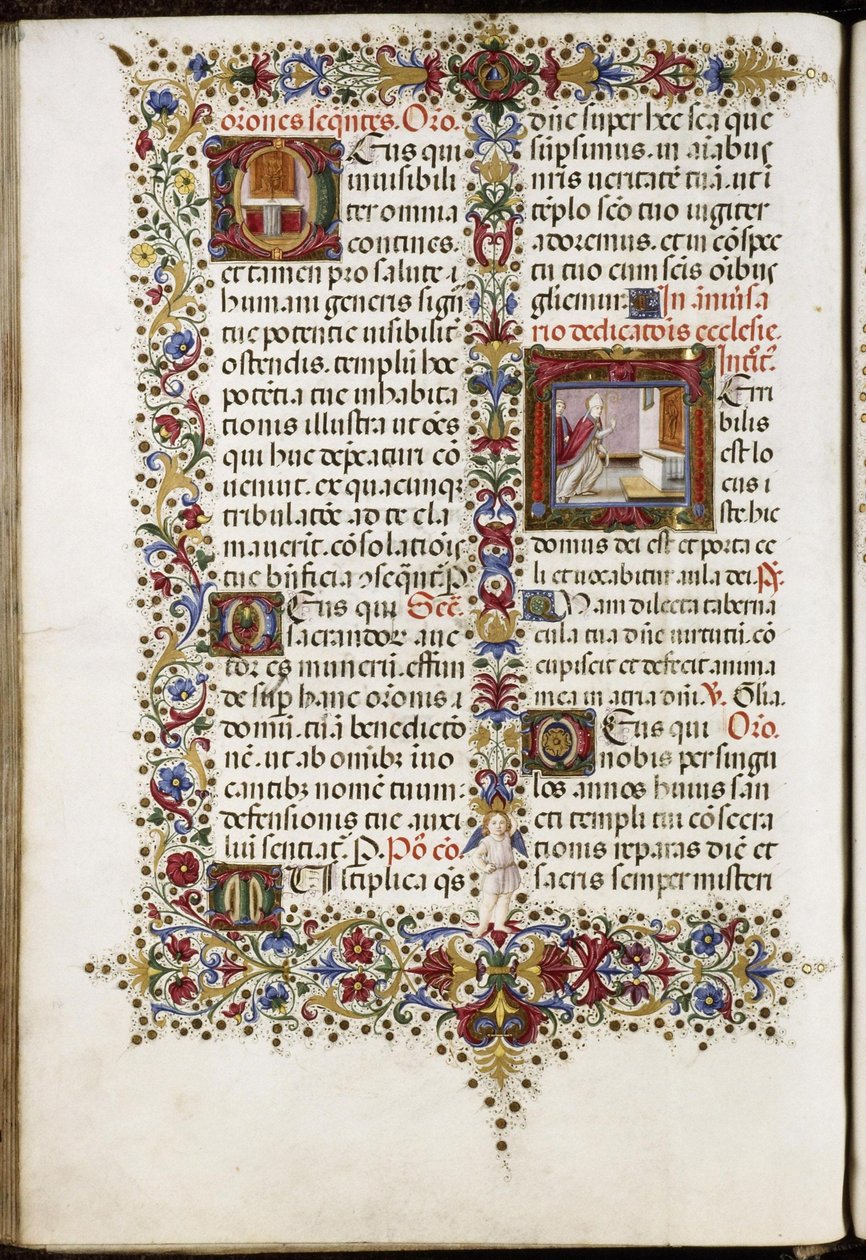 orōnes seqntes. Orō.
Deus qui
inuisibili
ter omnia
contines.
et tamen pro salute
humani generis signū
tue potentie uisibilit̄
ostendis. templū hoc
potētia tue inhabita
tionis illustra ut oēs
qui huc dep̄caturi cō
ueniūt. ex quacunqꝫ
tribulatōe ad te cla
mauerīt. cōsolatiōis
tue bn̄ficia ꝯsequāt̄. P̄
Deus qui Sec̄.
sacrandoꝝ auc
tor es munerū. effun
de suꝑ hanc orōnis
domū. tuā benedictō
nē. ut ab omībꝫ īuo
cantibꝫ nomē tuum:
defensionis tue auxi
liū sentiat̄. P̄. Pō cō.
Multiplica q̄s
dn̄e super hec sc̄a que
sūpsimus. in aīabus
nr̄is ueritatē tuā. ut ī
tēplo scō tuo iugiter
adoremus. et in cōspec
tu tuo cum sc̄is oībus
gl̄iemur. In āniuˀsa
rio dedicatōis ecclesie.
Introit̄.
Terri
bilis
est lo
cus i
ste. hic
domus dei est et porta ce
li et uocabitur aula dei. P̄s.
Quam dilecta taberna
cula tua dn̄e uirtutū. cō
cupiscit et defecit anima
mea in atria dn̄i. V. Glīa.
Deus qui Orō.
nobis per singu
los annos huius san
cti templi tui cōsecra
tionis reparas diē et
sacris semper misteri